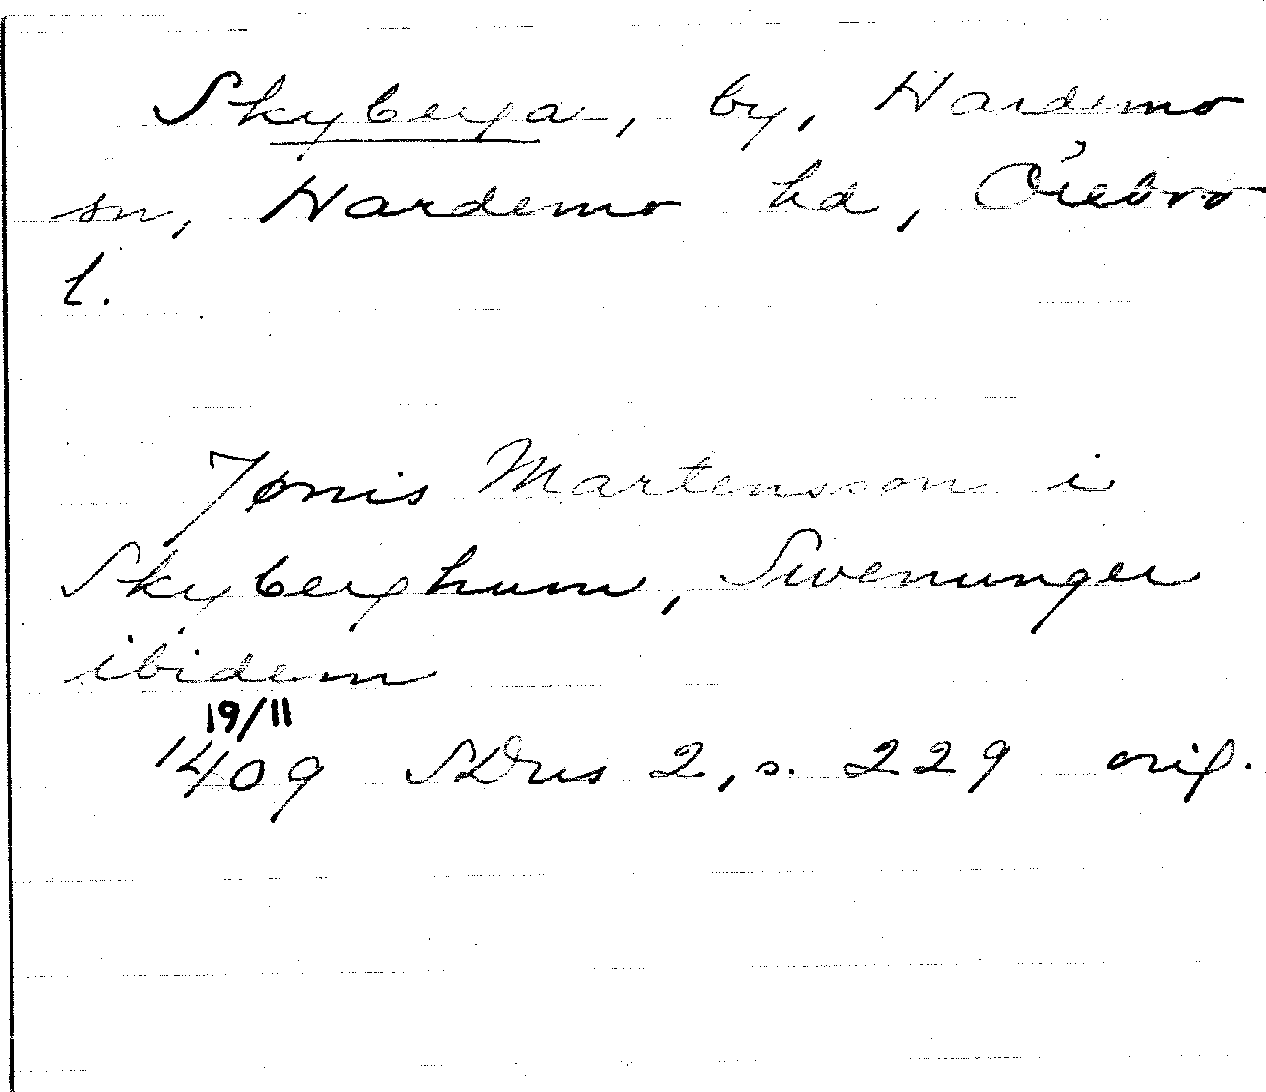 Skyberga, by, Hardemo
sn, Hardemo hd, Örebro
l.
Jønis Martensson i
Skyberghum, Swenunger
ibidem
19/11
1409 SDns 2, s. 229 orig.